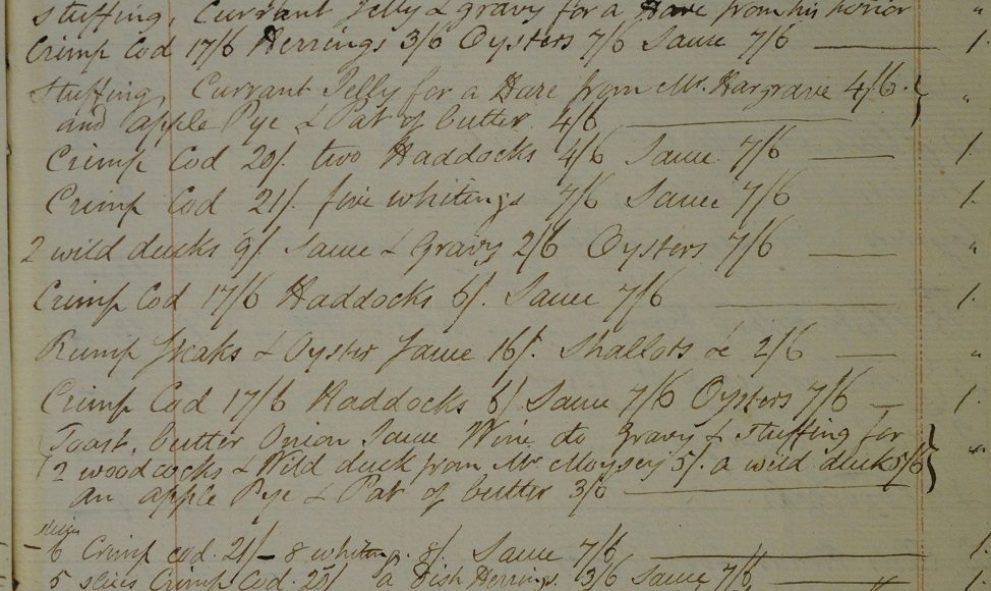 stuffing, Currant Jelly & gravy for a Hare from his honor "
Crimp Cod 17/6 Herrings 3/6 Oysters 7/6 Sauce 7/6 — 1.
stuffing, Currant Jelly for a Hare from Mr. Hargrave 4/6. "
and apple Pye & Pat of butter 4/6 —
Crimp Cod 20/. two Haddocks 4/6 Sauce 7/6 — 1.
Crimp Cod 21/. five whitings 7/6 Sauce 7/6 1.
2 wild ducks 9/ Sauce & Gravy 2/6 Oysters 7/6 — "
Crimp Cod 17/6 Haddocks 6/. Sauce 7/6 — 1.
Rump Steaks & Oyster Sauce 16/. Shallots &c 2/6 — "
Crimp Cod 17/6 Haddocks 6/ Sauce 7/6 Oysters 7/6 — 1.
Toast, butter Onion Sauce Wine do Gravy & stuffing for "
2 woodcocks & Wild duck from Mr Moysey 5/. a wild duck 5/6
an apple Pye & Pat of butter 3/6 —
slices
6 Crimp cod. 21/– 8 whiting. 8/. Sauce 7/6 — 1.
5 slices Crimp Cod. 20/ a Dish Herrings. 3/6 Sauce 7/6 — 1.